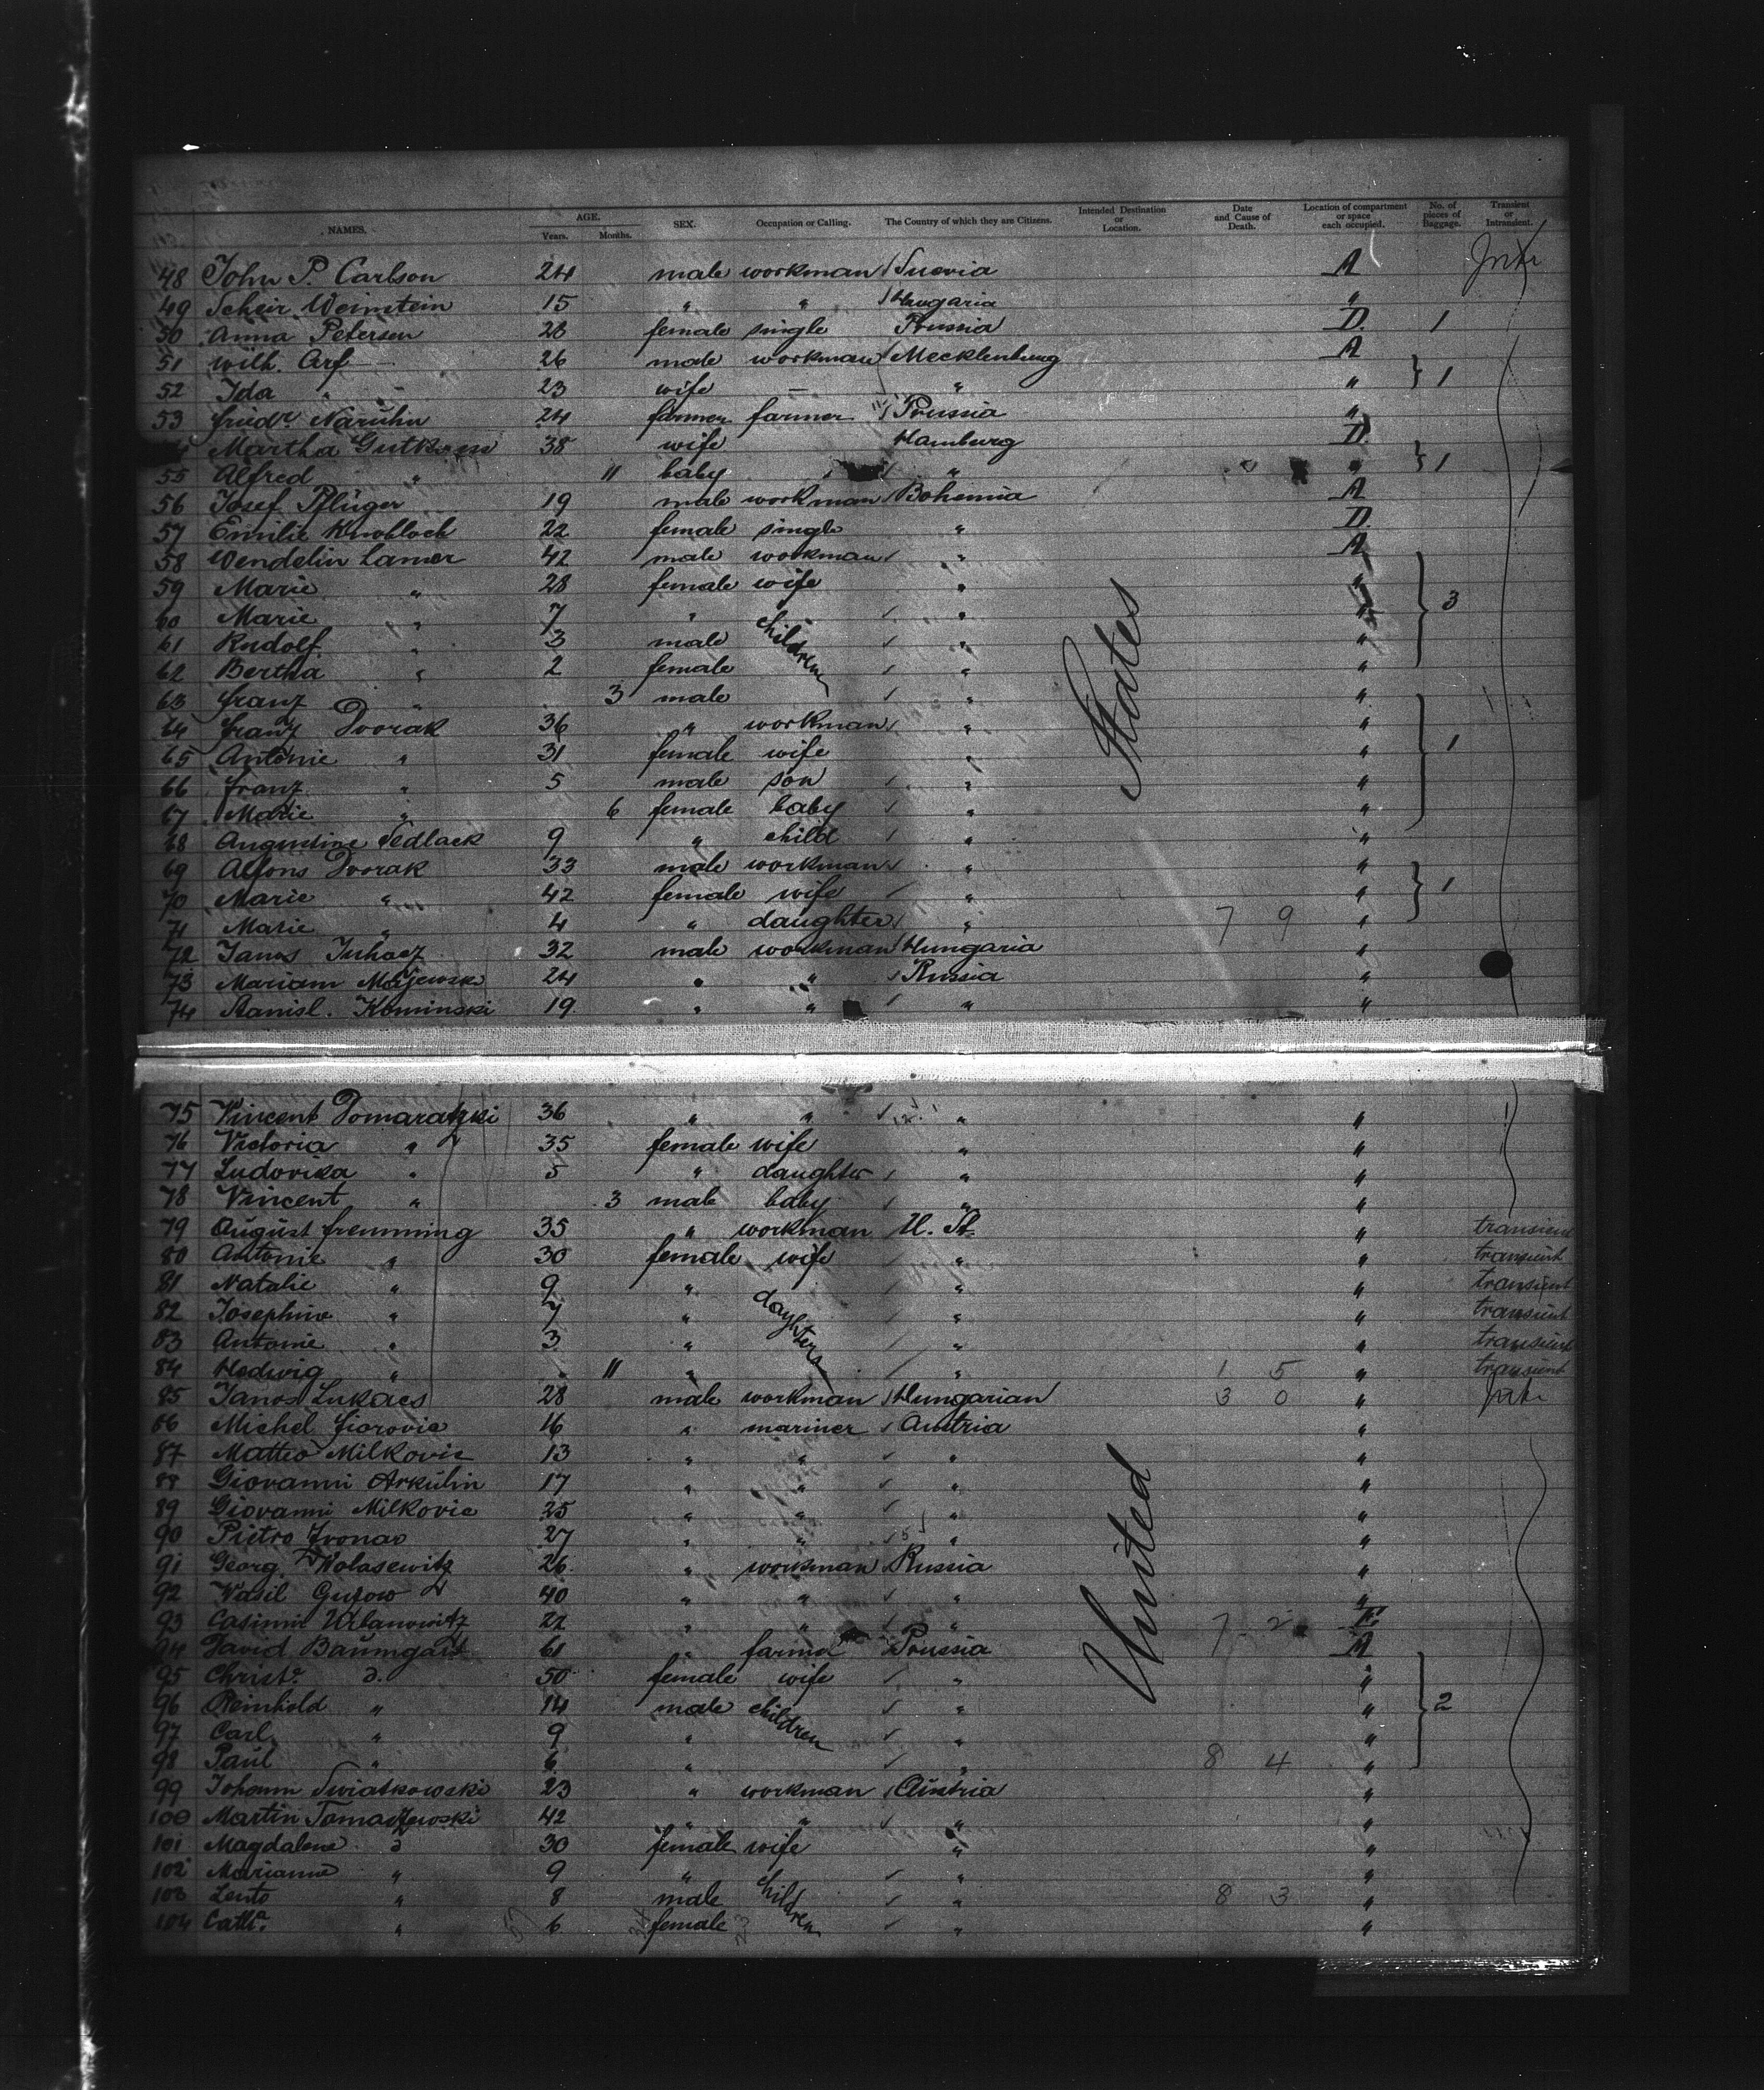 NAMES. AGE. Years. Months. SEX. Occupation or Calling. The Country of which they are Citizens. Intended Destination or Location. Date and Cause of Death. Location of compartment or space each occupied. No. of pieces of Baggage. Transient or Intransient.
48 John P. Carlson 24 male workman Suevia A
49 Scheir Weinstein 15 " " Hungaria "
50 Anna Petersen 28 female single Prussia D. 1
51 Wilh. Arf 26 male workman Mecklenburg A
52 Ida " 23 wife — " " 1
53 Friedr Naruhn 24 farmer farmer Prussia "
Martha 38 wife Hamburg D
55 Alfred " 11 baby " " 1
56 Josef Pflüger 19 male workman Bohemia A
57 Emilie Knobloch 22 female single " D
58 Wendelin Lamer 42 male workman " A
59 Marie " 28 female wife " "
60 Marie " 7 " children " " 3
61 Rudolf " 3 male " "
62 Bertha " 2 female " "
63 Franz " 3 male " "
64 Franz Dvorak 36 " workman " "
65 Antonie " 31 female wife " " 1
66 Franz " 5 male son " "
67 Marie " 6 female baby " "
68 Augustine Sedlack 9 " child " "
69 Alfons Dvorak 33 male workman " "
70 Marie " 42 female wife " " 1
71 Marie " 4 " daughter " 7 9 "
72 Janos Juhacz 32 male workman Hungaria "
73 Mariam Majewsk 24 " " Russia "
74 Stanisl. Kominski 19 " " " "
States
75 Vincent Domaratzki 36 " " " "
76 Victoria " 35 female wife " "
77 Ludovika " 5 " daughter " "
78 Vincent " 3 male baby " "
79 August Fremming 35 " workman U. St. " transient
80 Antonie " 30 female wife " " transient
81 Natalie " 9 " " " transient
82 Josephine " 7 " dayhters " " transient
83 Antonie " 3 " " " transient
84 Hedwig " 11 " " 1 5 " transient
85 Janos Lukacs 28 male workman Hungarian 3 0 "
86 Michel 16 " mariner Austria "
87 Matteo Milkovic 13 " " " "
88 Giovanni Arkulin 17 " " " "
89 Giovanni Milkovic 25 " " " "
90 Pietro 27 " " " "
91 Georg Wolasewitz 26 " workman Russia "
92 Wasil Gutow 40 " " " "
93 Casimir Urbanowitz 22 " " " 7 2
94 David Baumgart 61 " farmer Prussia A
95 Christe d. 50 female wife " "
96 Reinhold " 14 male children " " 2
97 Carl " 9 " " "
98 Paul " 6 " " 8 4 "
99 Johann Swiatkowski 23 " workman Austria "
100 Martin Tomaszewski 42 " " " "
101 Magdalene d 30 female wife " "
102 Marianne " 9 " " "
103 " 8 male children " 8 3 "
104 Catha. " 6 female " "
United